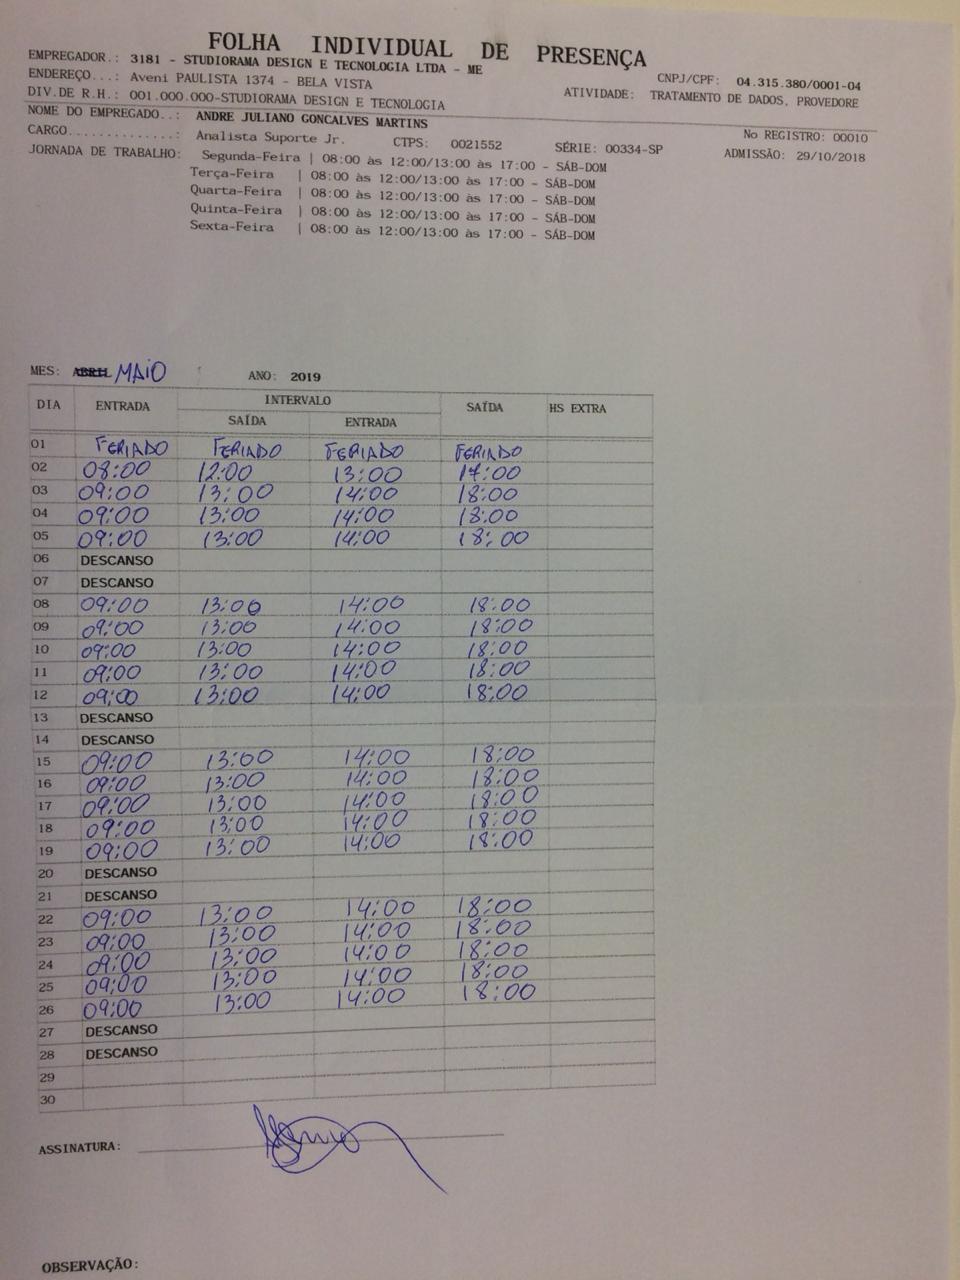 FOLHA INDIVIDUAL DE PRESENÇA
EMPREGADOR.: 3181 - STUDIORAMA DESIGN E TECNOLOGIA LTDA - ME
ENDEREÇO...: Aveni PAULISTA 1374 - BELA VISTA CNPJ/CPF: 04.315.380/0001-04
DIV.DE R.H.: 001.000.000-STUDIORAMA DESIGN E TECNOLOGIA ATIVIDADE: TRATAMENTO DE DADOS, PROVEDORE
NOME DO EMPREGADO..: ANDRE JULIANO GONCALVES MARTINS No REGISTRO: 00010
CARGO.............: Analista Suporte Jr. CTPS: 0021552 SÉRIE: 00334-SP ADMISSÃO: 29/10/2018
JORNADA DE TRABALHO: Segunda-Feira | 08:00 às 12:00/13:00 às 17:00 - SÁB-DOM
Terça-Feira | 08:00 às 12:00/13:00 às 17:00 - SÁB-DOM
Quarta-Feira | 08:00 às 12:00/13:00 às 17:00 - SÁB-DOM
Quinta-Feira | 08:00 às 12:00/13:00 às 17:00 - SÁB-DOM
Sexta-Feira | 08:00 às 12:00/13:00 às 17:00 - SÁB-DOM
MES: ABRIL MAIO ANO: 2019
DIA ENTRADA INTERVALO SAÍDA HS EXTRA
SAÍDA ENTRADA
01 FERIADO FERIADO FERIADO FERIADO
02 08:00 12:00 13:00 17:00
03 09:00 13:00 14:00 18:00
04 09:00 13:00 14:00 18:00
05 09:00 13:00 14:00 18:00
06 DESCANSO
07 DESCANSO
08 09:00 13:00 14:00 18:00
09 09:00 13:00 14:00 18:00
10 09:00 13:00 14:00 18:00
11 09:00 13:00 14:00 18:00
12 09:00 13:00 14:00 18:00
13 DESCANSO
14 DESCANSO
15 09:00 13:00 14:00 18:00
16 09:00 13:00 14:00 18:00
17 09:00 13:00 14:00 18:00
18 09:00 13:00 14:00 18:00
19 09:00 13:00 14:00 18:00
20 DESCANSO
21 DESCANSO
22 09:00 13:00 14:00 18:00
23 09:00 13:00 14:00 18:00
24 09:00 13:00 14:00 18:00
25 09:00 13:00 14:00 18:00
26 09:00 13:00 14:00 18:00
27 DESCANSO
28 DESCANSO
29
30
ASSINATURA:
OBSERVAÇÃO: